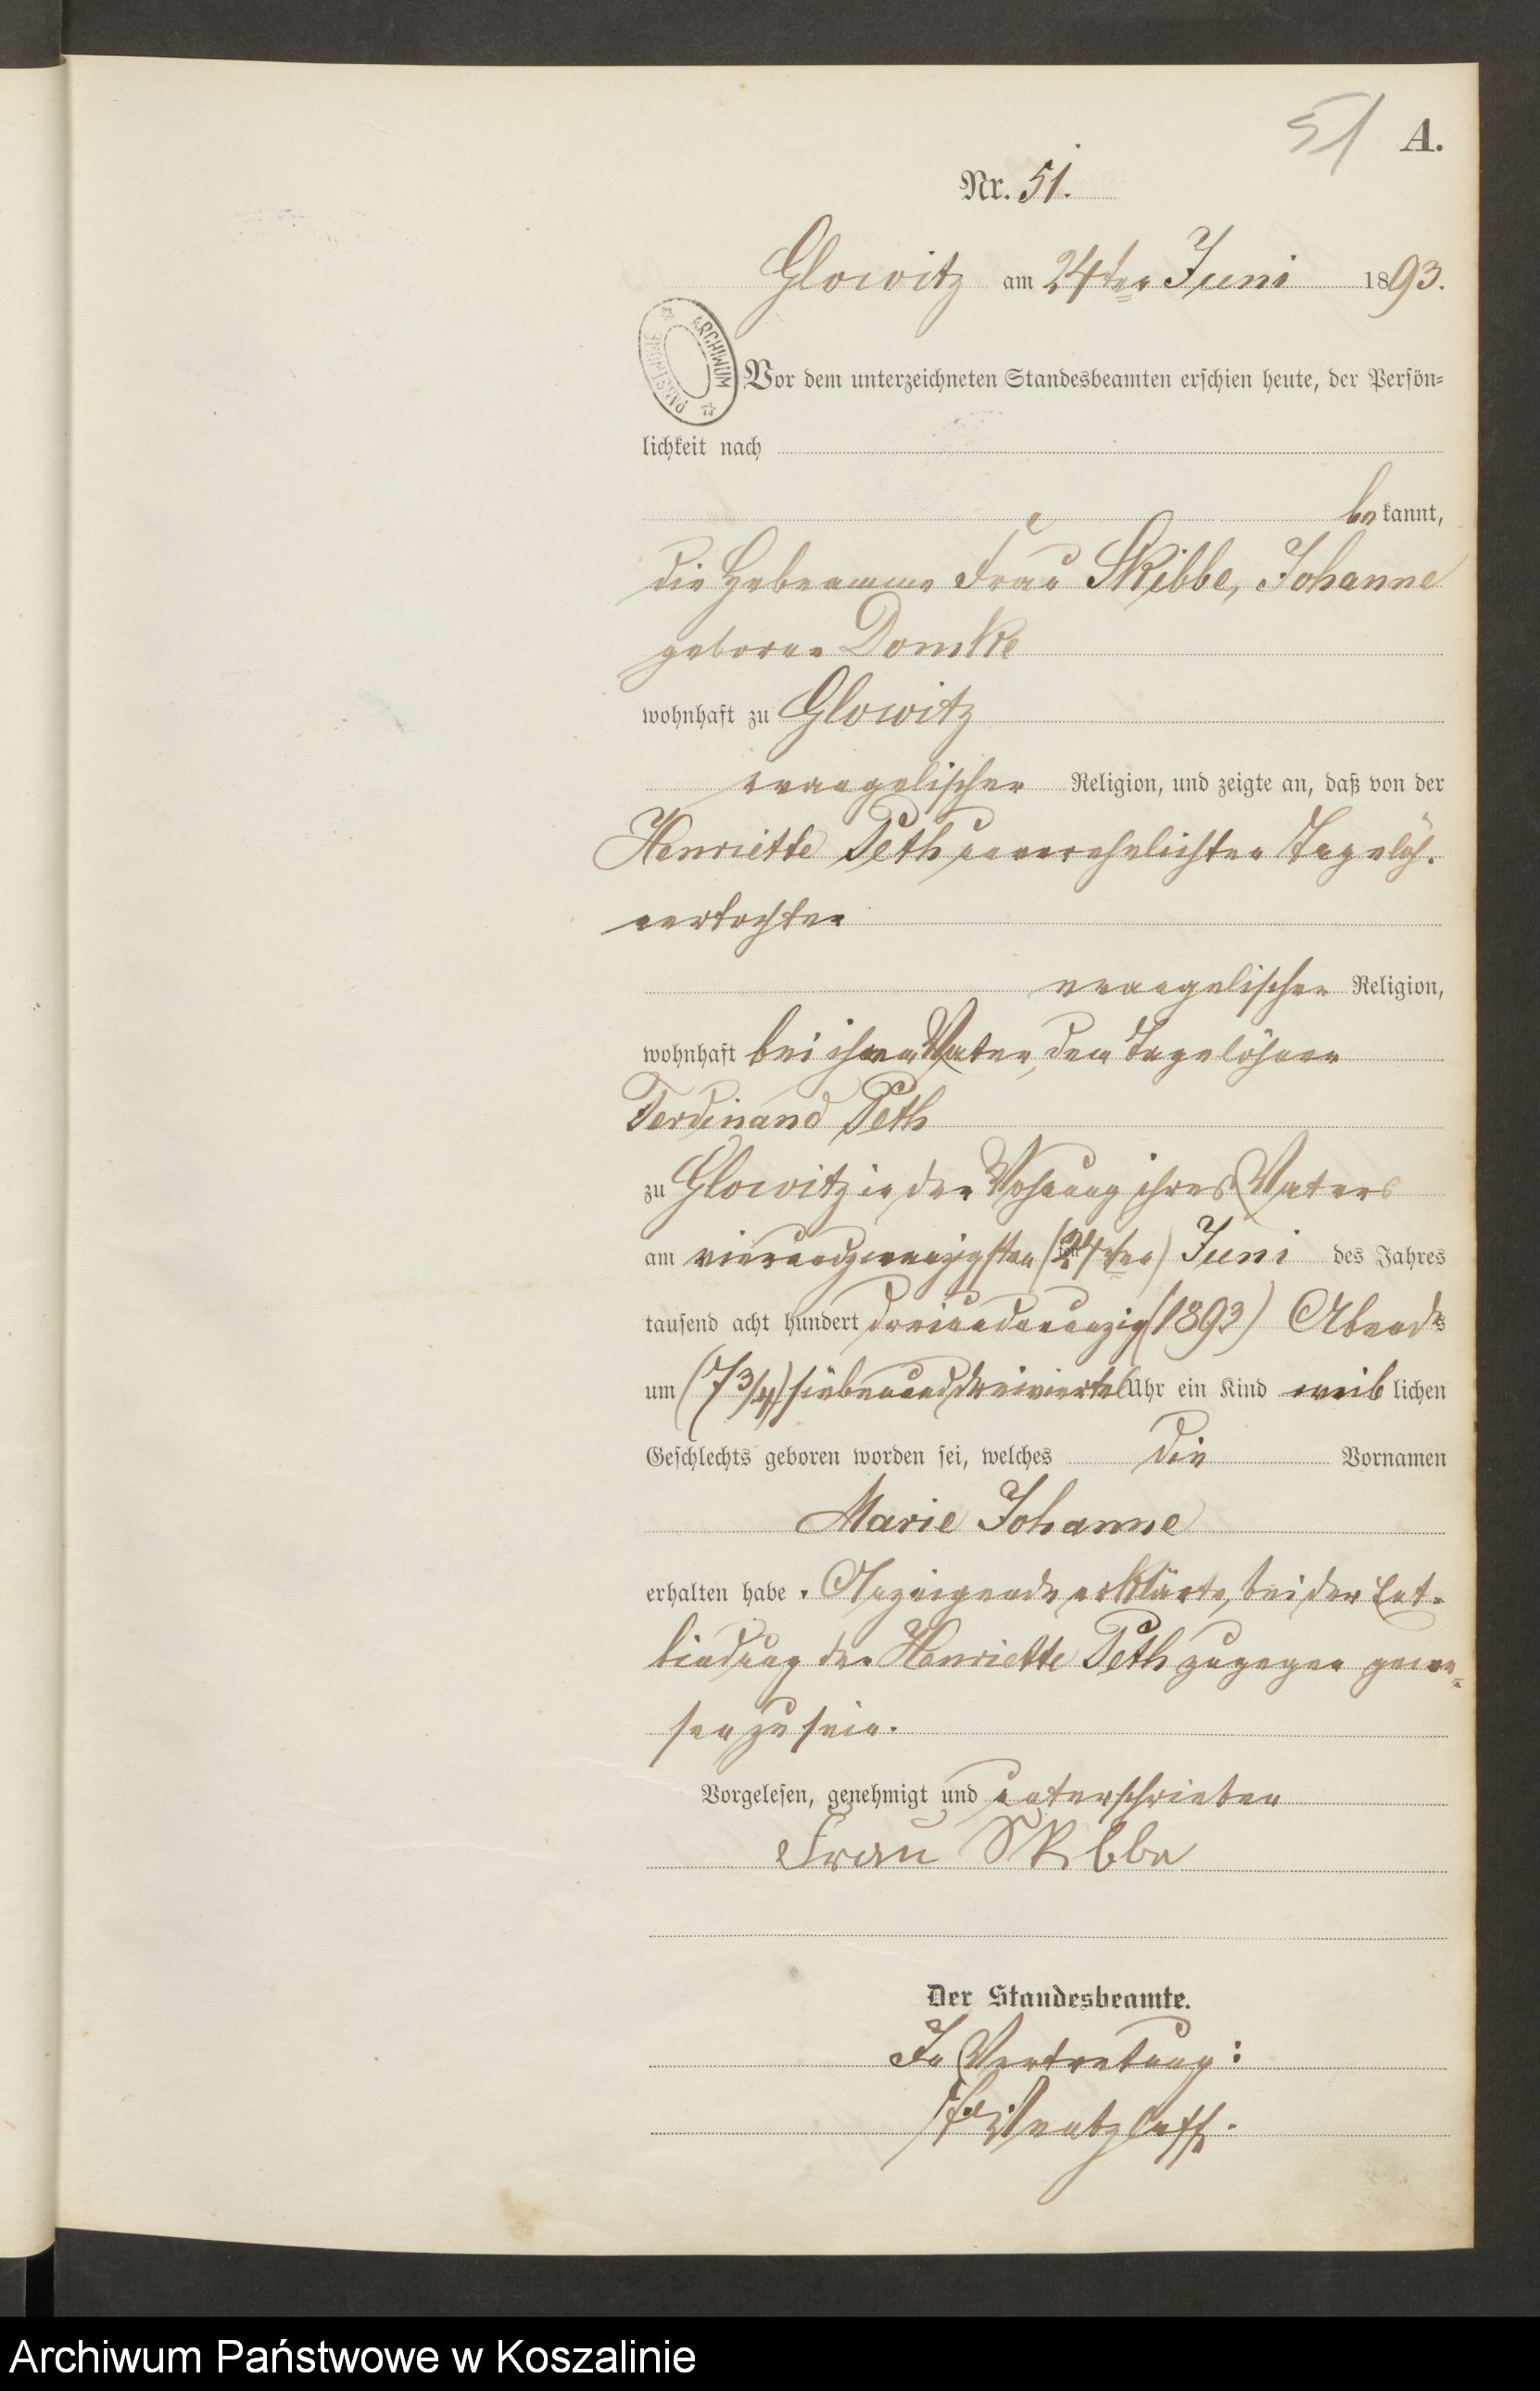 51 A.
Nr. 51.
Glowitz am 24ten Juni 1893.
ARCHIWUM PAŃSTWOWE
Vor dem unterzeichneten Standesbeamten erschien heute, der Persön-
lichkeit nach
bekannt,
die Hebeamme Frau Skibbe, Johanne
geborne Domke
wohnhaft zu Glowitz
evangelischer Religion, und zeigte an, daß von der
Henriette Peth unverehelichten Tagelöh.
nertochter
evangelischer Religion,
wohnhaft bei ihrem Vater, dem Tagelöhner
Ferdinand Peth
zu Glowitz in der Wohnung ihres Vaters
am vierundzwanzigsten (24ten) Juni des Jahres
tausend acht hundert dreiundneunzig (1893) Abends
um (7 3/4) sieben und dreiviertel Uhr ein Kind weiblichen
Geschlechts geboren worden sei, welches die Vornamen
Marie Johanne
erhalten habe. Anzeigende erklärte, bei der Ent-
bindung der Henriette Peth zugegen gewe-
sen zu sein.
Vorgelesen, genehmigt und unterschrieben
Frau Skibbe
Der Standesbeamte.
In Vertretung:
Wentzlaff.
Archiwum Państwowe w Koszalinie